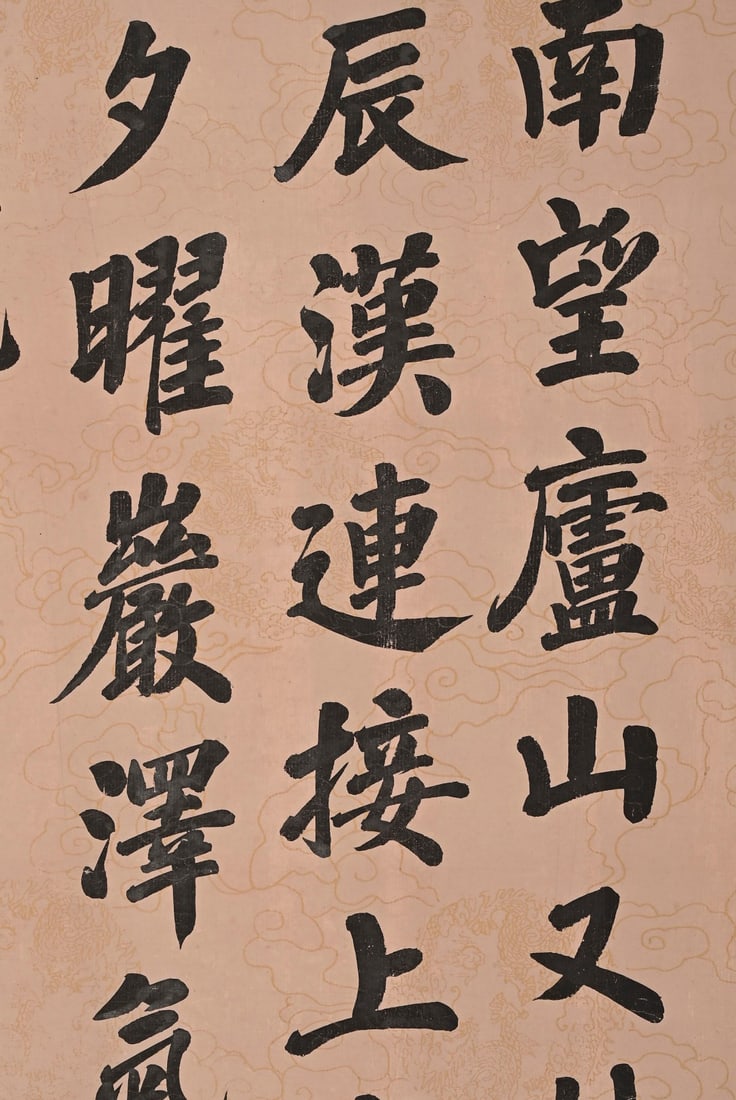 南望廬山又
辰漢連接上
夕曜巖澤氣